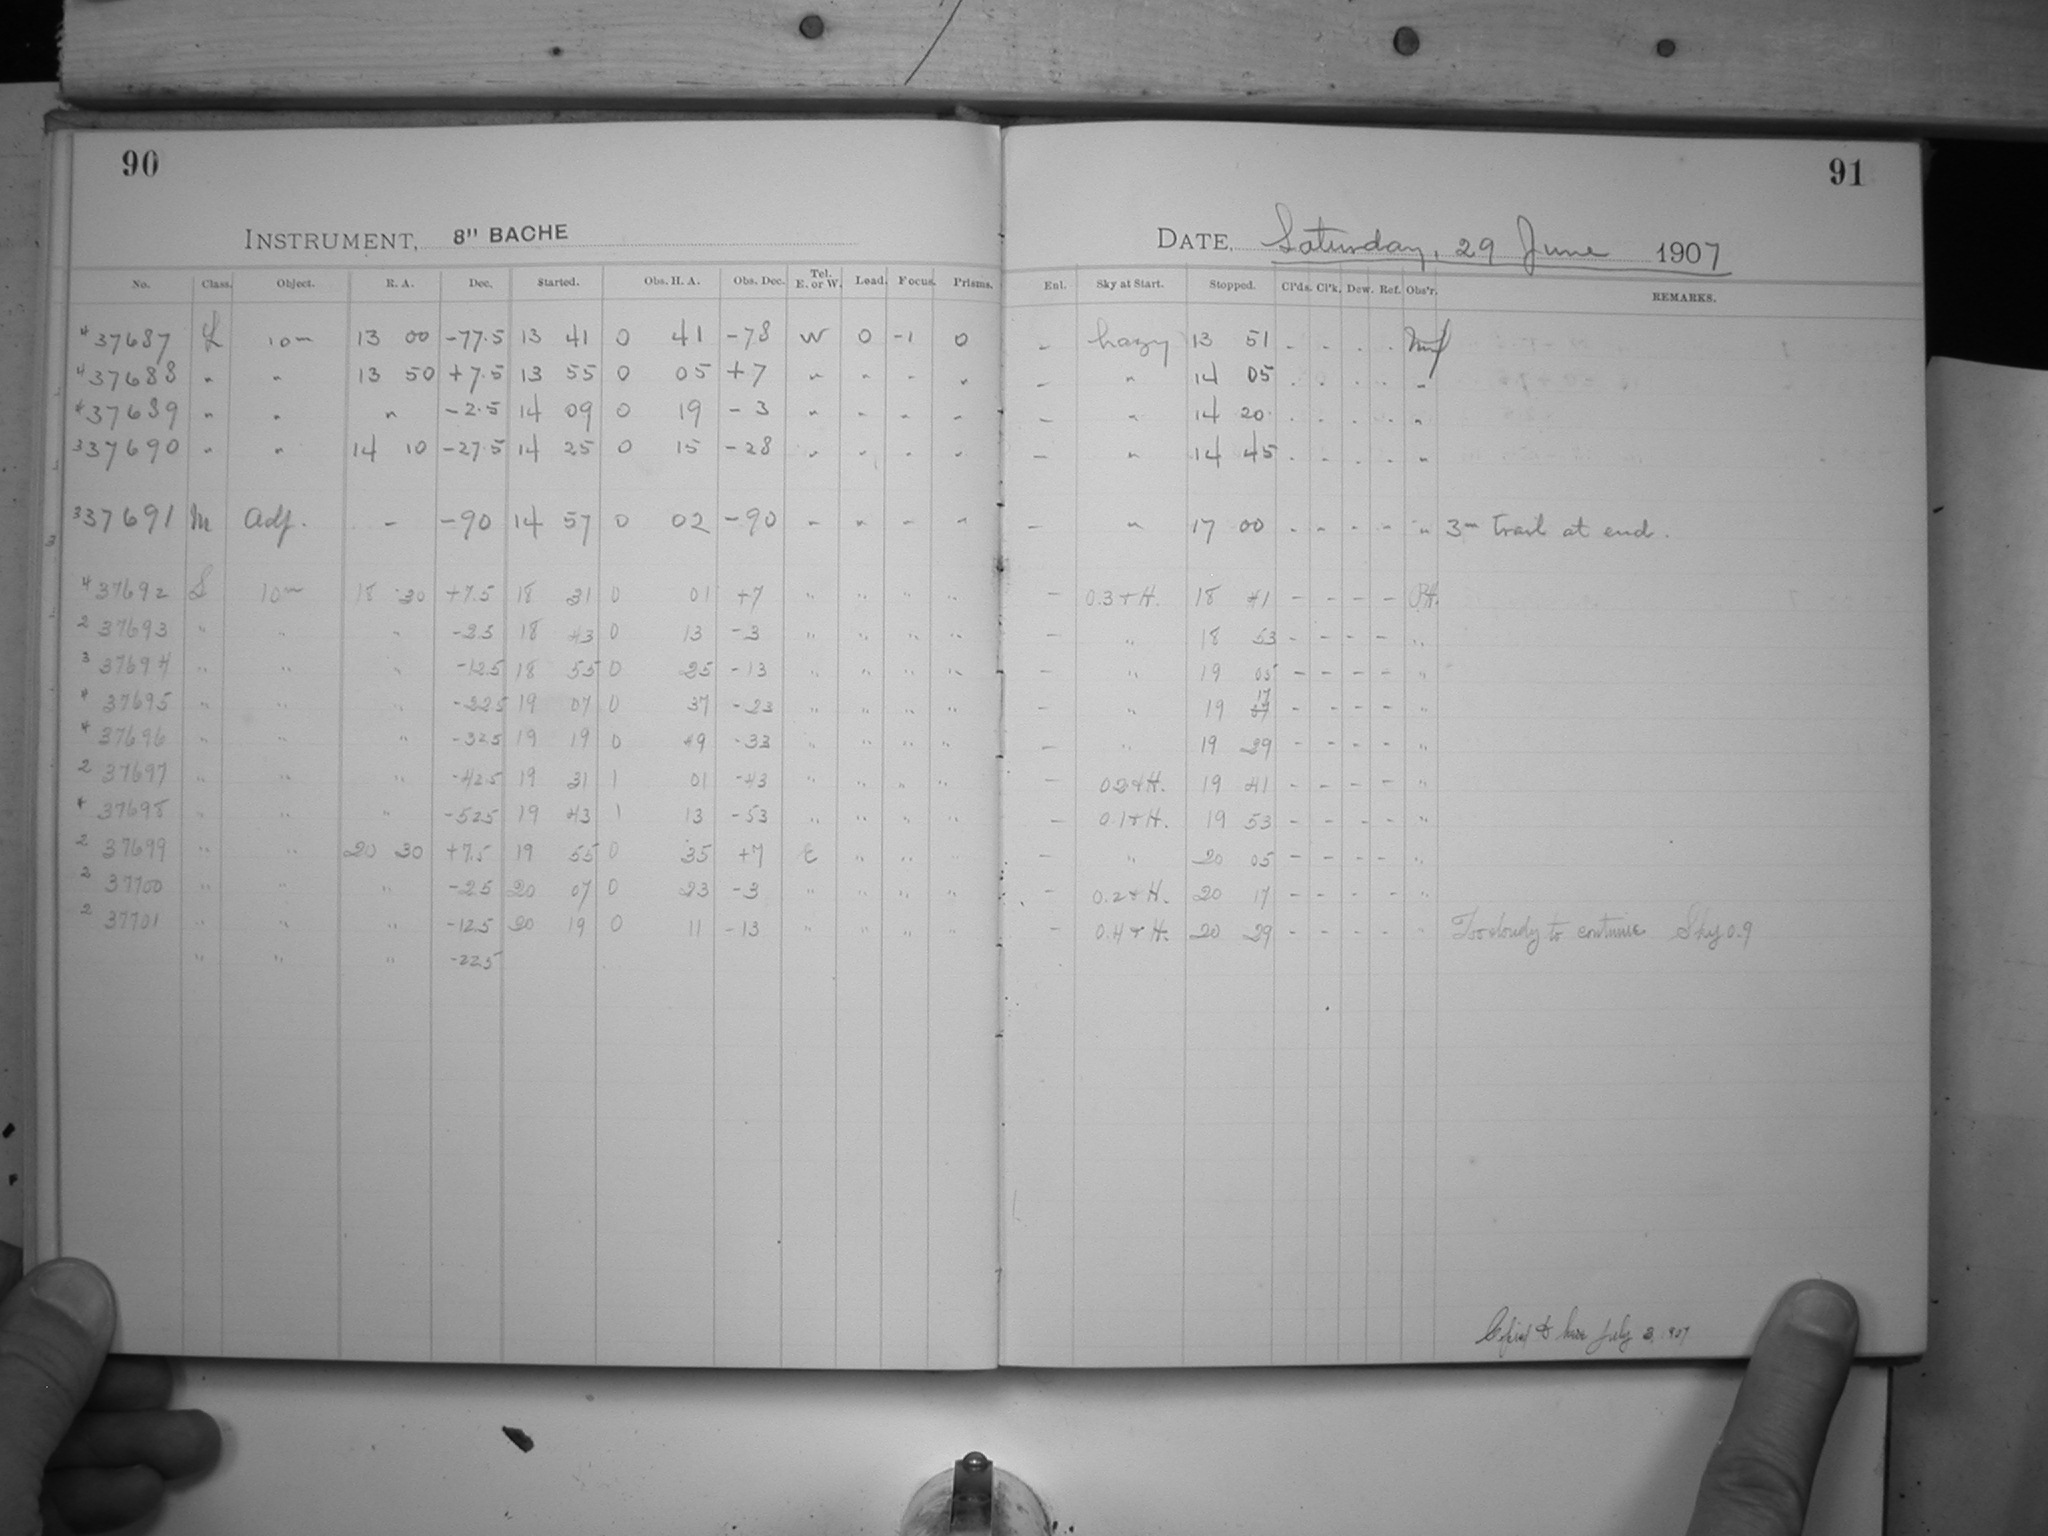 90
INSTRUMENT, 8" BACHE
No. Class. Object. R. A. Dec. Started. Obs. H. A. Obs. Dec. Tel. E. or W. Lead. Focus. Prisms.
4 37687 L 10m 13 00 -77.5 13 41 0 41 -78 W 0 -1 0
4 37688 " " 13 50 +7.5 13 55 0 05 +7 " " " "
4 37689 " " " -2.5 14 09 0 19 -3 " " " "
3 37690 " " 14 10 -27.5 14 25 0 15 -28 " " " "
3 37691 M Adj. - -90 14 57 0 02 -90 " " " "
4 37692 L 10m 18 30 +7.5 18 31 0 01 +7 " " " "
2 37693 " " " -2.5 18 43 0 13 -3 " " " "
3 37694 " " " -12.5 18 55 0 25 -13 " " " "
4 37695 " " " -22.5 19 07 0 37 -23 " " " "
4 37696 " " " -32.5 19 19 0 49 -33 " " " "
2 37697 " " " -42.5 19 31 1 01 -43 " " " "
4 37698 " " " -52.5 19 43 1 13 -53 " " " "
2 37699 " " 20 30 +7.5 19 55 0 35 +7 E " " "
2 37700 " " " -2.5 20 07 0 23 -3 " " " "
2 37701 " " " -12.5 20 19 0 11 -13 " " " "
" " " -22.5
91
DATE, Saturday, 29 June 1907
Enl. Sky at Start. Stopped. Cl'ds. Cl'k. Dew. Ref. Obs'r. REMARKS.
- hazy 13 51 - - - -
- " 14 05 - - - - "
- " 14 20 - - - - "
- " 14 45 - - - - "
- " 17 00 - - - - " 3m trail at end.
- 0.3 + H. 18 41 - - - - P.H.
- " 18 53 - - - - "
- " 19 05 - - - - "
- " 19 07 17 - - - - "
- " 19 29 - - - - "
- 0.2 + H. 19 41 - - - - "
- 0.1 + H. 19 53 - - - - "
- " 20 05 - - - - "
- 0.2 + H. 20 17 - - - - "
- 0.4 + H. 20 29 - - - - " Too cloudy to continue Sky 0.9
Copied to here July 3, 1907